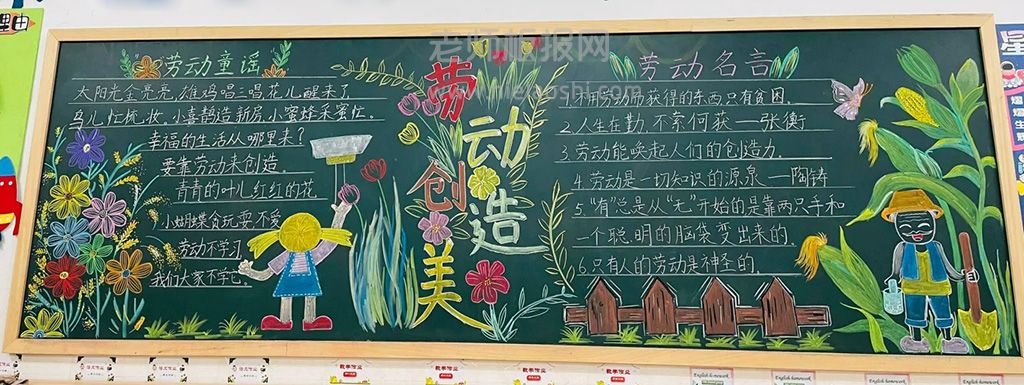 理由
老师板报网
劳动童谣
太阳光金亮亮,雄鸡唱三唱花儿醒来了
鸟儿忙梳妆,小喜鹊造新房,小蜜蜂采蜜忙。
幸福的生活从哪里来?
要靠劳动来创造。
青青的叶儿红红的花
小蝴蝶贪玩耍不爱
劳动不学习
我们大家不学它。
劳动创造美
劳动名言
1.不用劳动而获得的东西只有贫困。
2.人生在勤,不索何获——张衡
3.劳动能唤起人们的创造力。
4.劳动是一切知识的源泉—陶铸
5.“有”总是从“无”开始的是靠两只手和
一个聪明的脑袋变出来的。
6.只有人的劳动是神圣的。
语文作业
语文作业
数学作业
数学作业
数学作业
数学作业
English homework
English homework
English homework